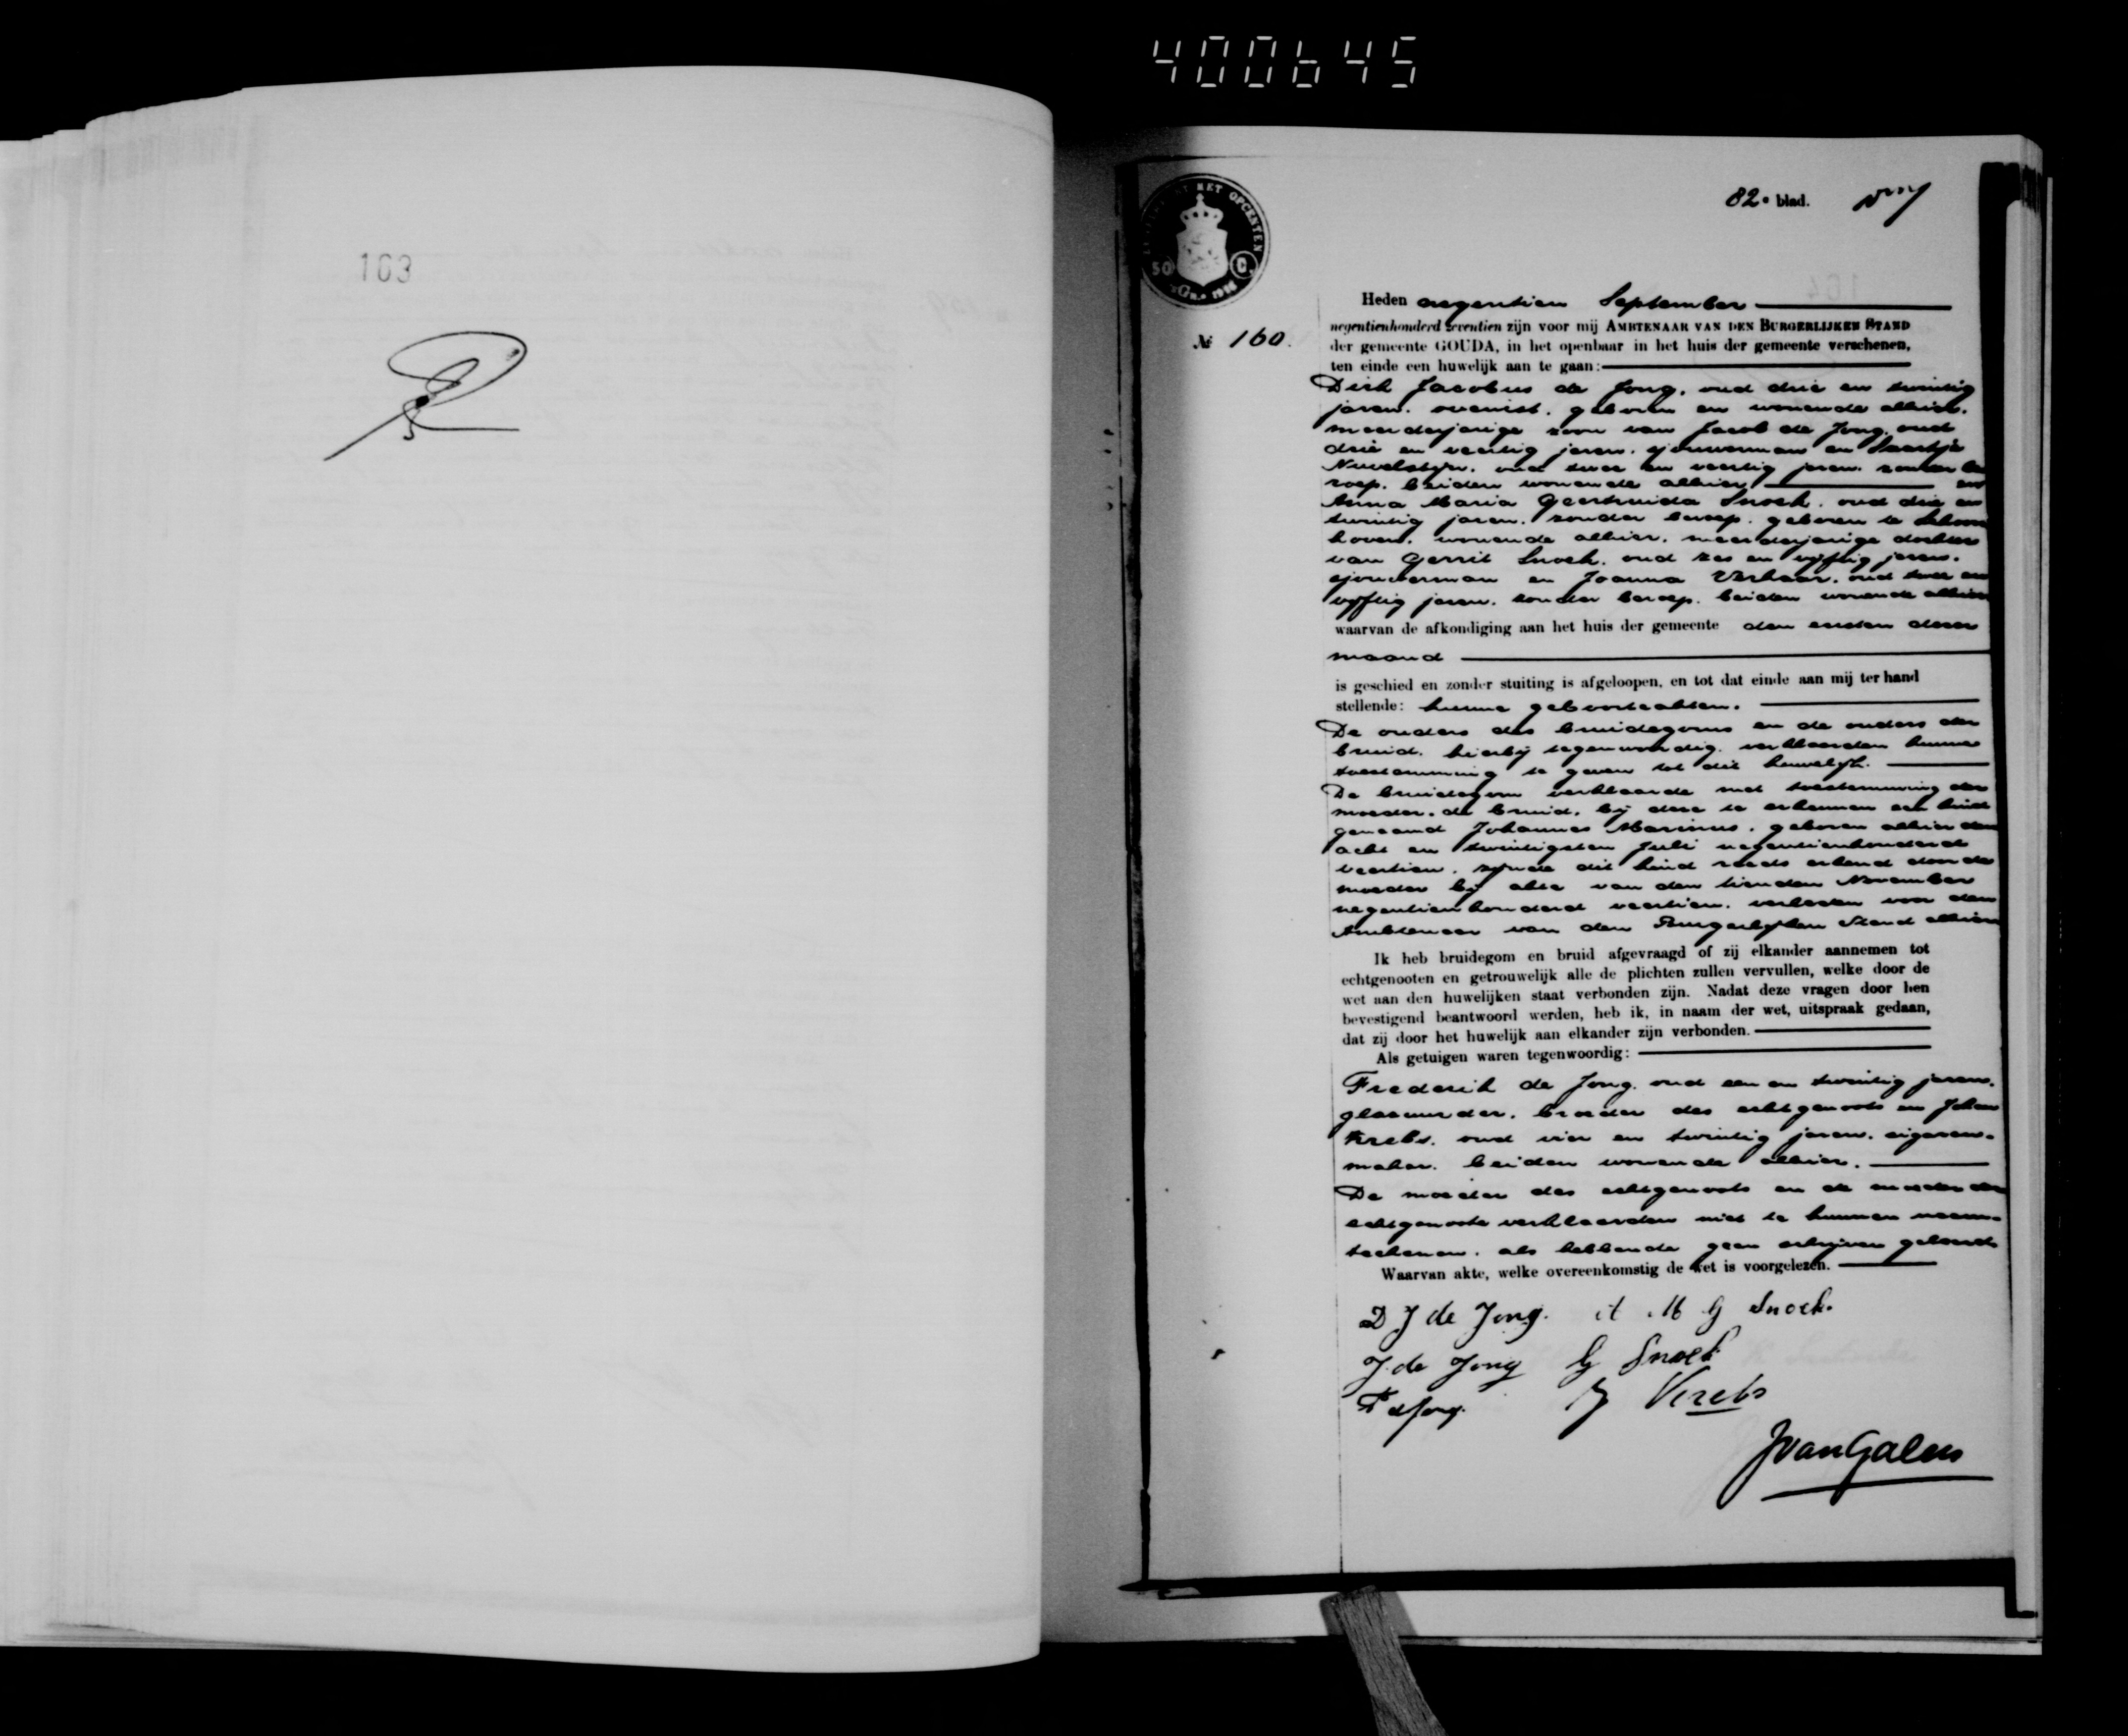 400645
103
82e blad.
MET OPCENTEN
50 C.
No 160.
Heden negentien September
negentienhonderd zeventien zijn voor mij AMBTENAAR VAN DEN BURGERLIJKEN STAND
der gemeente GOUDA, in het openbaar in het huis der gemeente verschenen,
ten einde een huwelijk aan te gaan:
Dirk Jacobus de Jong, oud drie en twintig
jaren, ovenist, geboren en wonende alhier,
meerderjarige zoon van Jacob de Jong, oud
drie en veertig jaren, sjouwerman en Saartje
oud twee en veertig jaren, zonder be
roep, beiden wonende alhier en
Anna Maria Geertruida Snoek, oud drie en
twintig jaren, zonder beroep, geboren te Schoon
hoven, wonende alhier, meerderjarige dochter
van Gerrit Snoek, oud zes en vijftig jaren,
sjouwerman en Joanna Verhaar, oud twee en
vijftig jaren, zonder beroep, beiden wonende alhier
waarvan de afkondiging aan het huis der gemeente den eersten dezer
maand
is geschied en zonder stuiting is afgeloopen, en tot dat einde aan mij ter hand
stellende: hunne geboorteakten.
De ouders des bruidegoms en de ouders der
bruid, hierbij tegenwoordig, verklaarden hunne
toestemming te geven tot dit huwelijk.
De bruidegom verklaarde met toestemming der
moeder, de bruid, bij deze te erkennen een kind
genaamd Johannes Marinus, geboren alhier den
acht en twintigsten Juli negentienhonderd
veertien, zijnde dit kind reeds erkend door de
moeder bij akte van den tienden November
negentienhonderd veertien, verleden voor den
Ambtenaar van den Burgerlijken Stand alhier
Ik heb bruidegom en bruid afgevraagd of zij elkander aannemen tot
echtgenooten en getrouwelijk alle de plichten zullen vervullen, welke door de
wet aan den huwelijken staat verbonden zijn. Nadat deze vragen door hen
bevestigend beantwoord werden, heb ik, in naam der wet, uitspraak gedaan,
dat zij door het huwelijk aan elkander zijn verbonden.
Als getuigen waren tegenwoordig:
Frederik de Jong, oud een en twintig jaren,
glasruider, broeder des echtgenoots en Johan
Krebs, oud vier en twintig jaren, sigaren-
maker, beiden wonende alhier.
De moeder des echtgenoots en de moeder der
echtgenoote verklaarden niet te kunnen naam-
teekenen, als hebbende geen schrijven geleerd
Waarvan akte, welke overeenkomstig de wet is voorgelezen.
D J de Jong. A M G Snoek.
J. de Jong G Snoek
F de Jong. J Krebs
JvanGalen